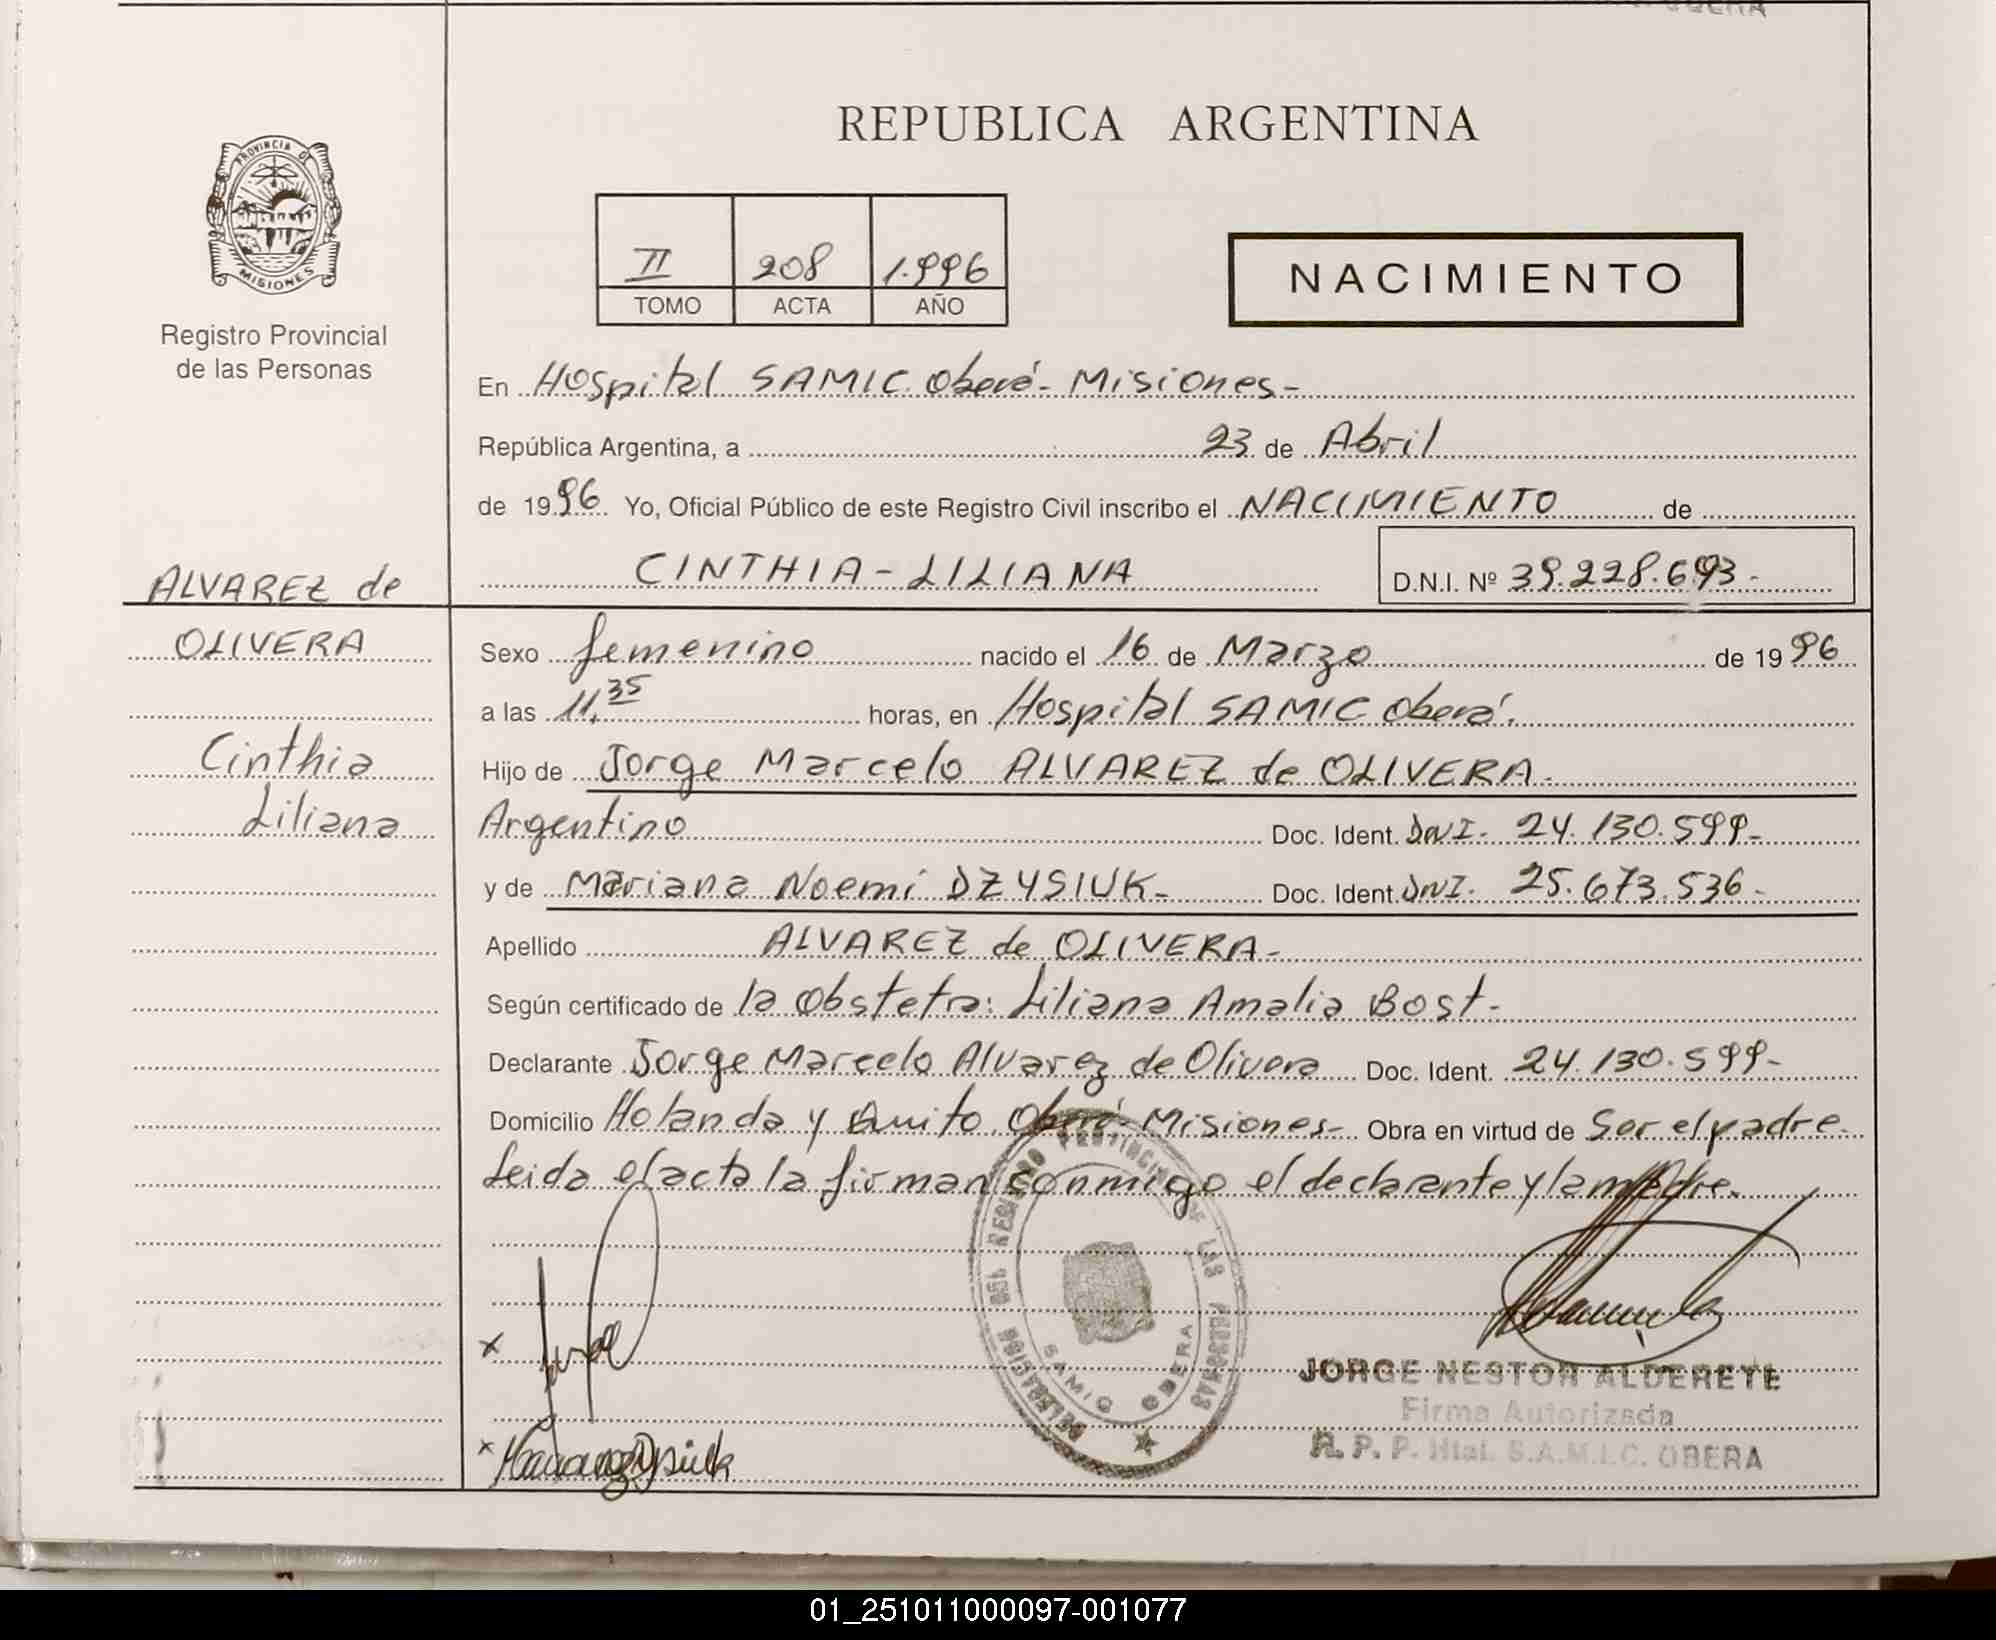 REPUBLICA ARGENTINA
PROVINCIA DE
MISIONES
Registro Provincial
de las Personas
II 208 1.996
TOMO ACTA AÑO
NACIMIENTO
En Hospital SAMIC Oberá - Misiones -
República Argentina, a 23 de Abril
de 1996 Yo, Oficial Público de este Registro Civil inscribo el NACIMIENTO de
CINTHIA - LILIANA D.N.I. Nº 39.228.693 -
ALVAREZ de
OLIVERA
Cinthia
Liliana
Sexo femenino nacido el 16 de Marzo de 1996
a las 11,35 horas, en Hospital SAMIC Oberá.
Hijo de Jorge Marcelo ALVAREZ de OLIVERA -
Argentino Doc. Ident. DNI. 24.130.599 -
y de Mariana Noemí DZYSIUK - Doc. Ident. DNI. 25.673.536 -
Apellido ALVAREZ de OLIVERA -
Según certificado de la obstetra: Liliana Amalia Bost -
Declarante Jorge Marcelo Alvarez de Olivera Doc. Ident. 24.130.599 -
Domicilio Holanda y Quito Oberá - Misiones - Obra en virtud de Ser el padre.
Leida el acta la firman conmigo el declarante y la madre.
DELEGACION DEL REGISTRO PROVINCIAL DE LAS PERSONAS
SAMIC OBERA
JORGE NESTOR ALDERETE
Firma Autorizada
R. P. P. Htal. S.A.M.I.C. OBERA
01_251011000097-001077